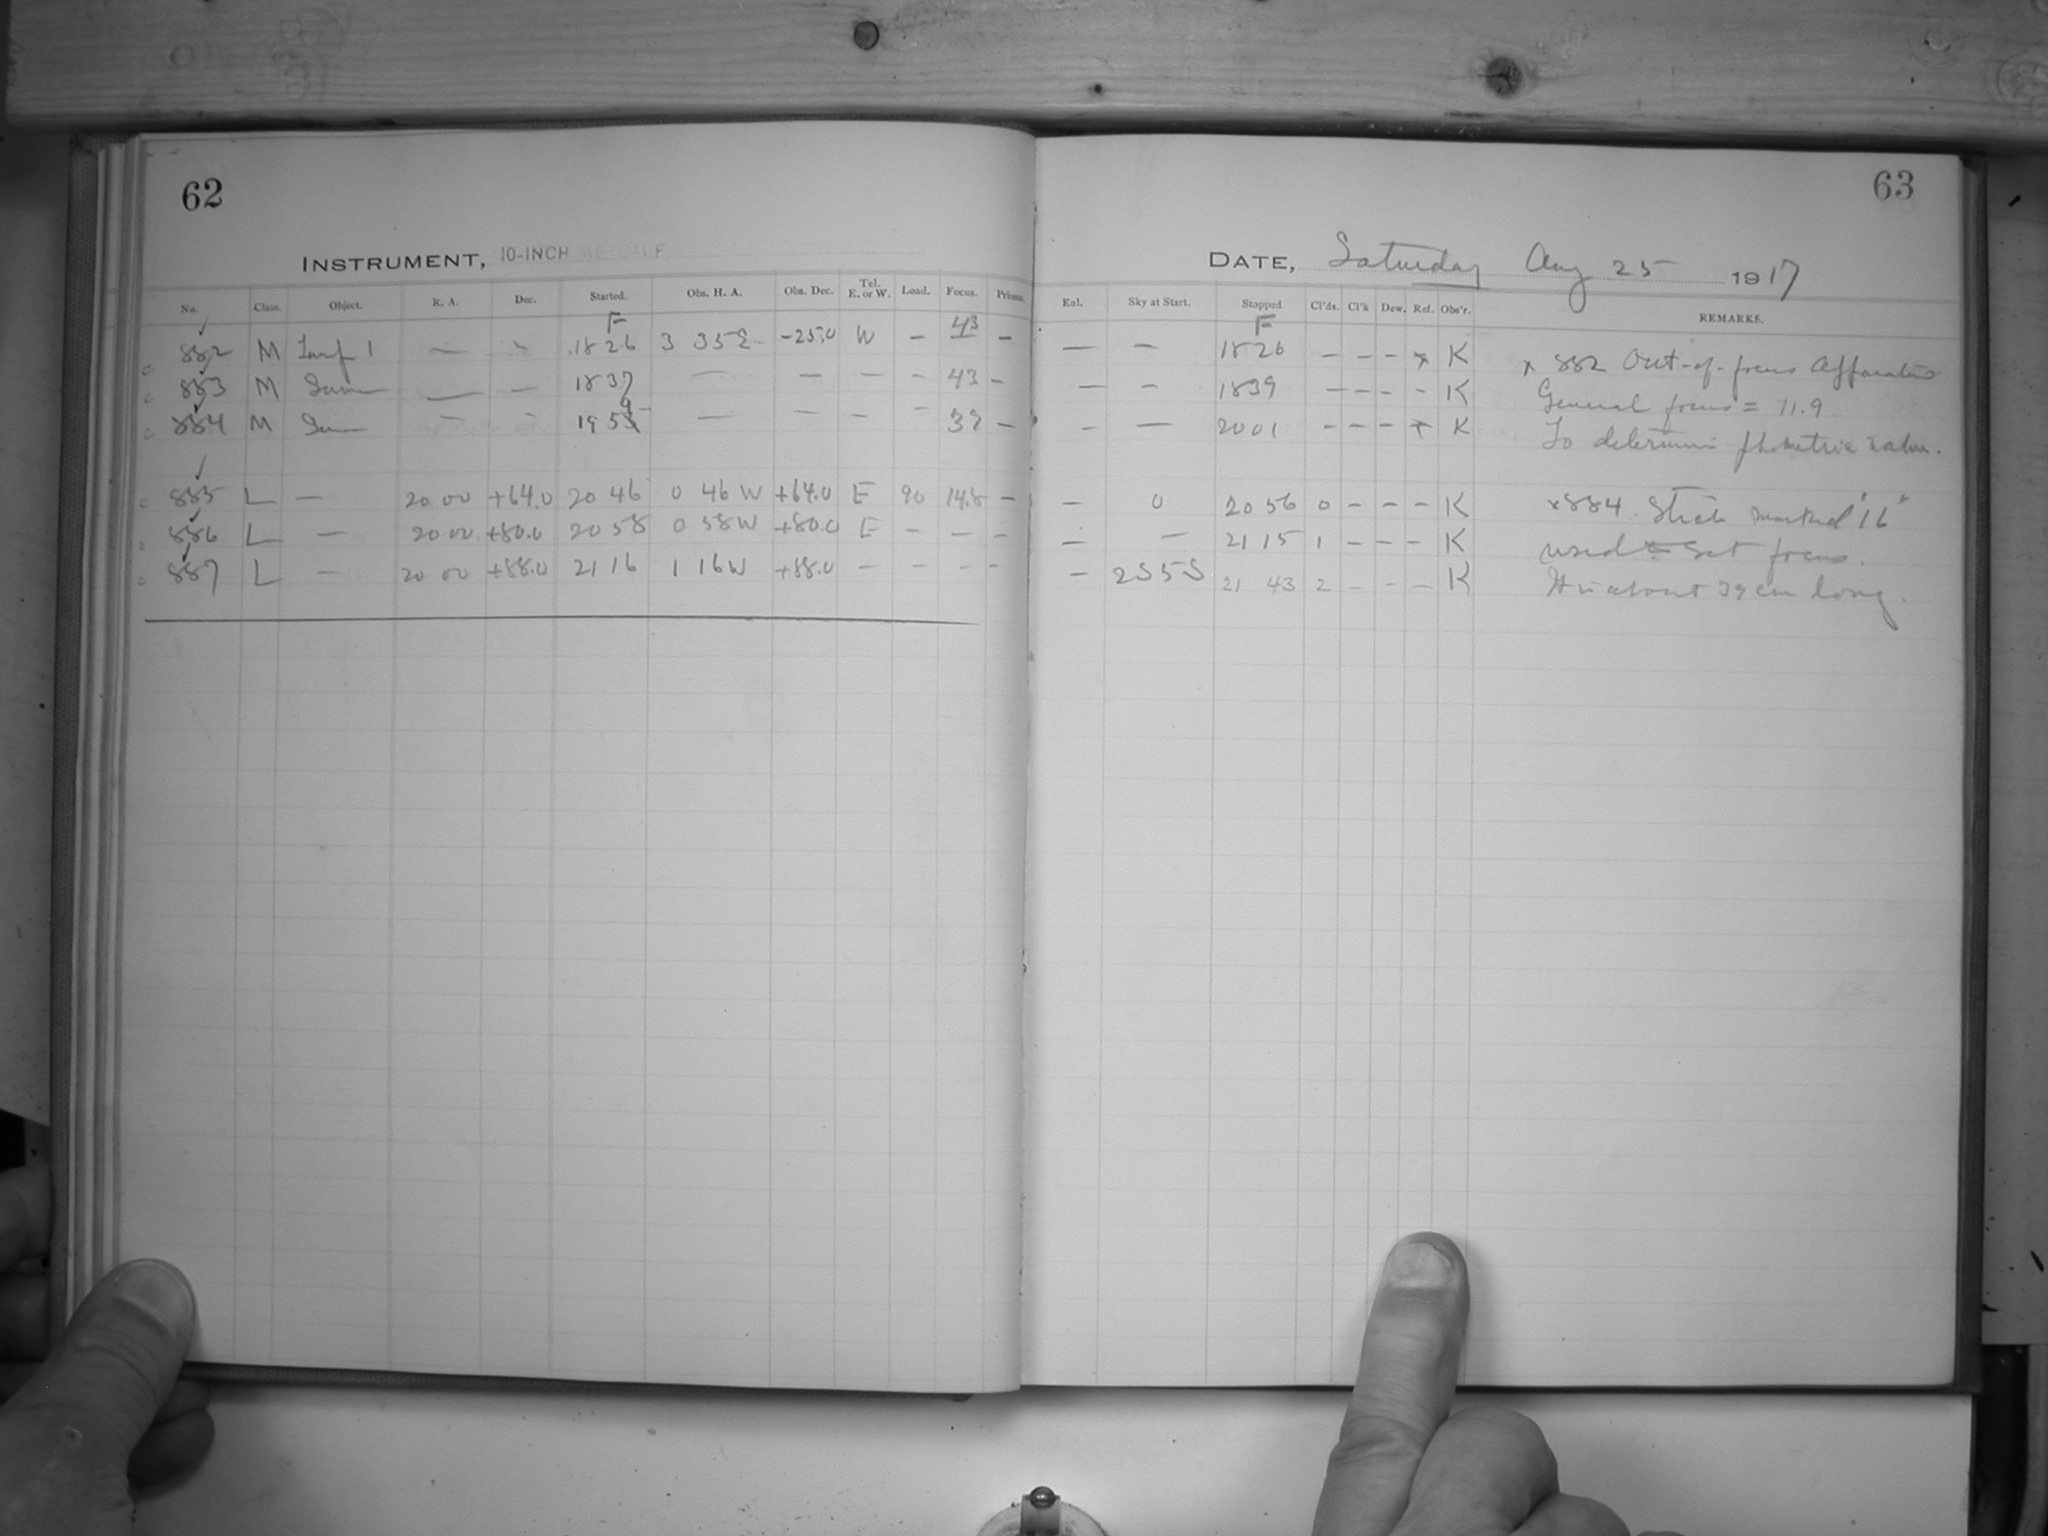 62
INSTRUMENT, 10-INCH METCALF
No. Class. Object. R. A. Dec. Started. Obs. H. A. Obs. Dec. Tel. E. or W. Load. Focus. Prisms.
F
882 M 1 — — 1826 3 35 E -25.0 W — 43 —
883 M Same — — 1837 — — — — 43 —
884 M Same — — 19 — — — — —
885 L — 20 00 +64.0 20 46 0 46 W +64.0 E 90 14.8 —
886 L — 20 00 +80.0 20 58 0 58 W +80.0 E — — —
887 L — 20 00 +88.0 21 16 1 16 W +88.0 — — — —
63
DATE, Saturday Aug 25 1917
Eal. Sky at Start. Stopped Cl'ds. Cl'k Dew. Ref. Obs'r. REMARKS.
F
— — 1826 — — — x K x 882 Out-of-focus Apparatus
— — 1839 — — — — K General focus = 11.9
— — 2001 — — — x K To determine photometric
— 0 20 56 0 — — — K x884. marked "16"
— — 21 15 1 — — — K used to set focus.
— 2S5S 21 43 2 — — — K It is about 39 cm long.